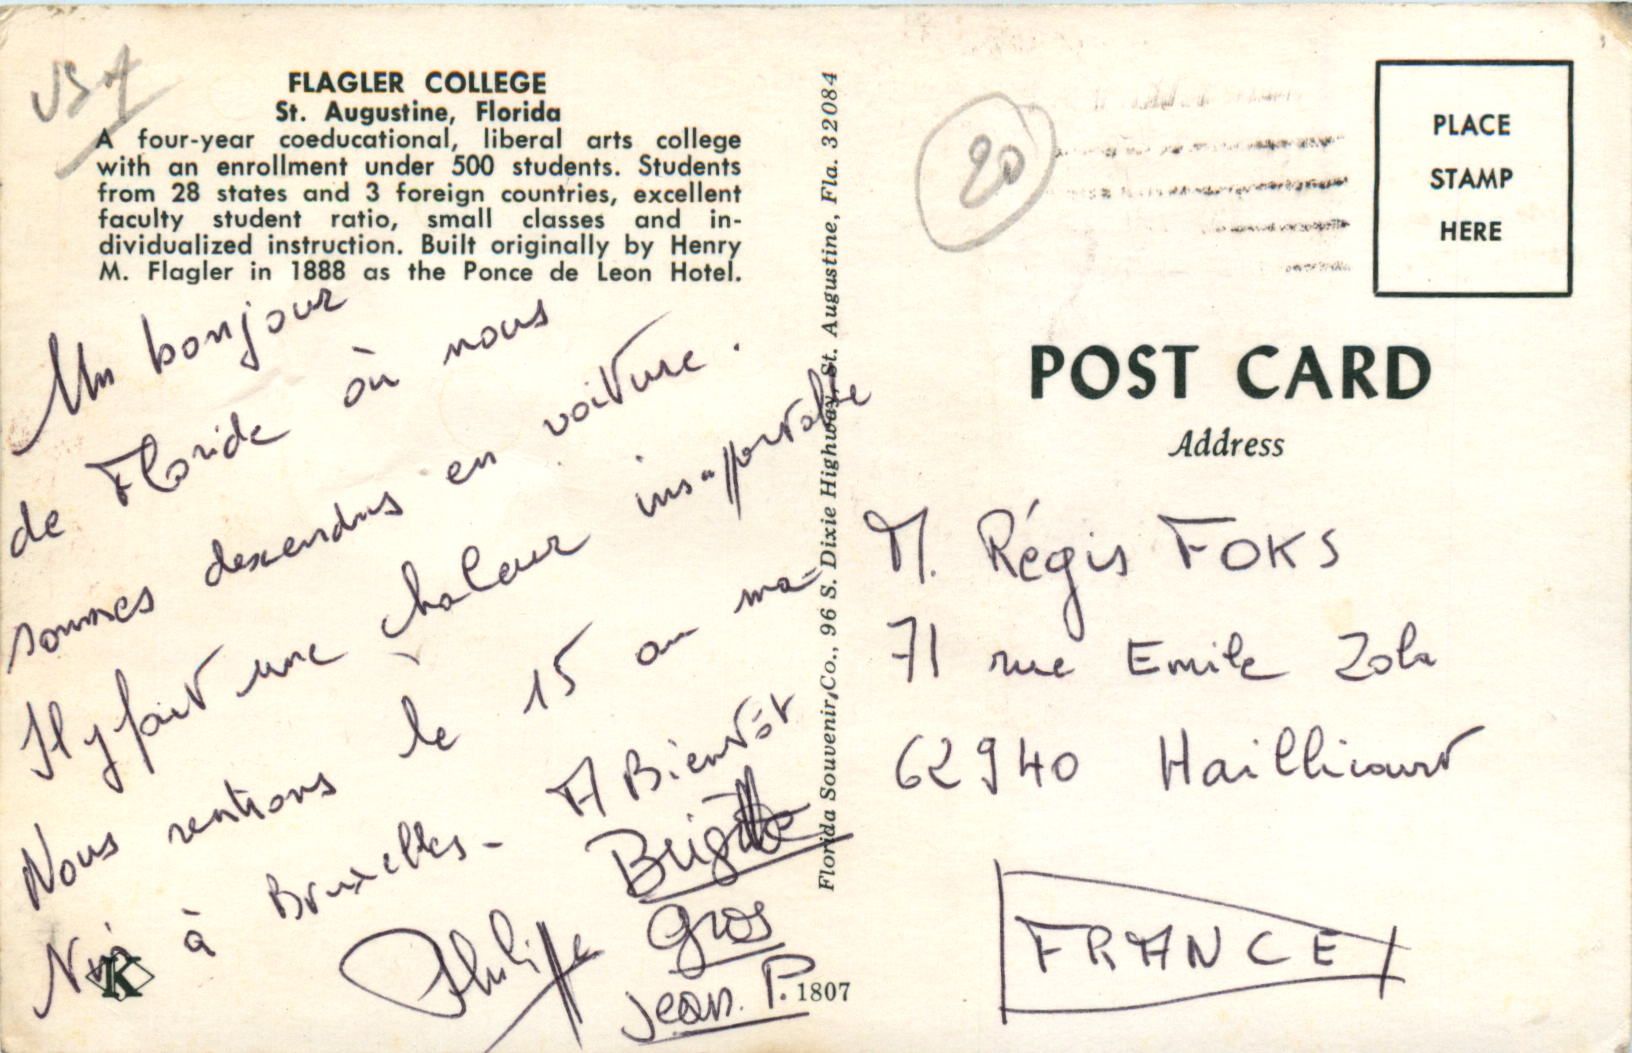 USA
FLAGLER COLLEGE
St. Augustine, Florida
A four-year coeducational, liberal arts college
with an enrollment under 500 students. Students
from 28 states and 3 foreign countries, excellent
faculty student ratio, small classes and in-
dividualized instruction. Built originally by Henry
M. Flagler in 1888 as the Ponce de Leon Hotel.
Un bonjour
de Floride où nous
sommes descendus en voiture.
Il y fait une chaleur insupportable
Nous rentrons le 15 au ma-
à Bruxelles - A Bientôt
Brigitte
Philippe Gros
Jean. P.
K
1807
Florida Souvenir Co., 96 S. Dixie Highway, St. Augustine, Fla. 32084
20
PLACE
STAMP
HERE
POST CARD
Address
M. Régis FOKS
71 rue Emile Zola
62940 Haillicourt
FRANCE